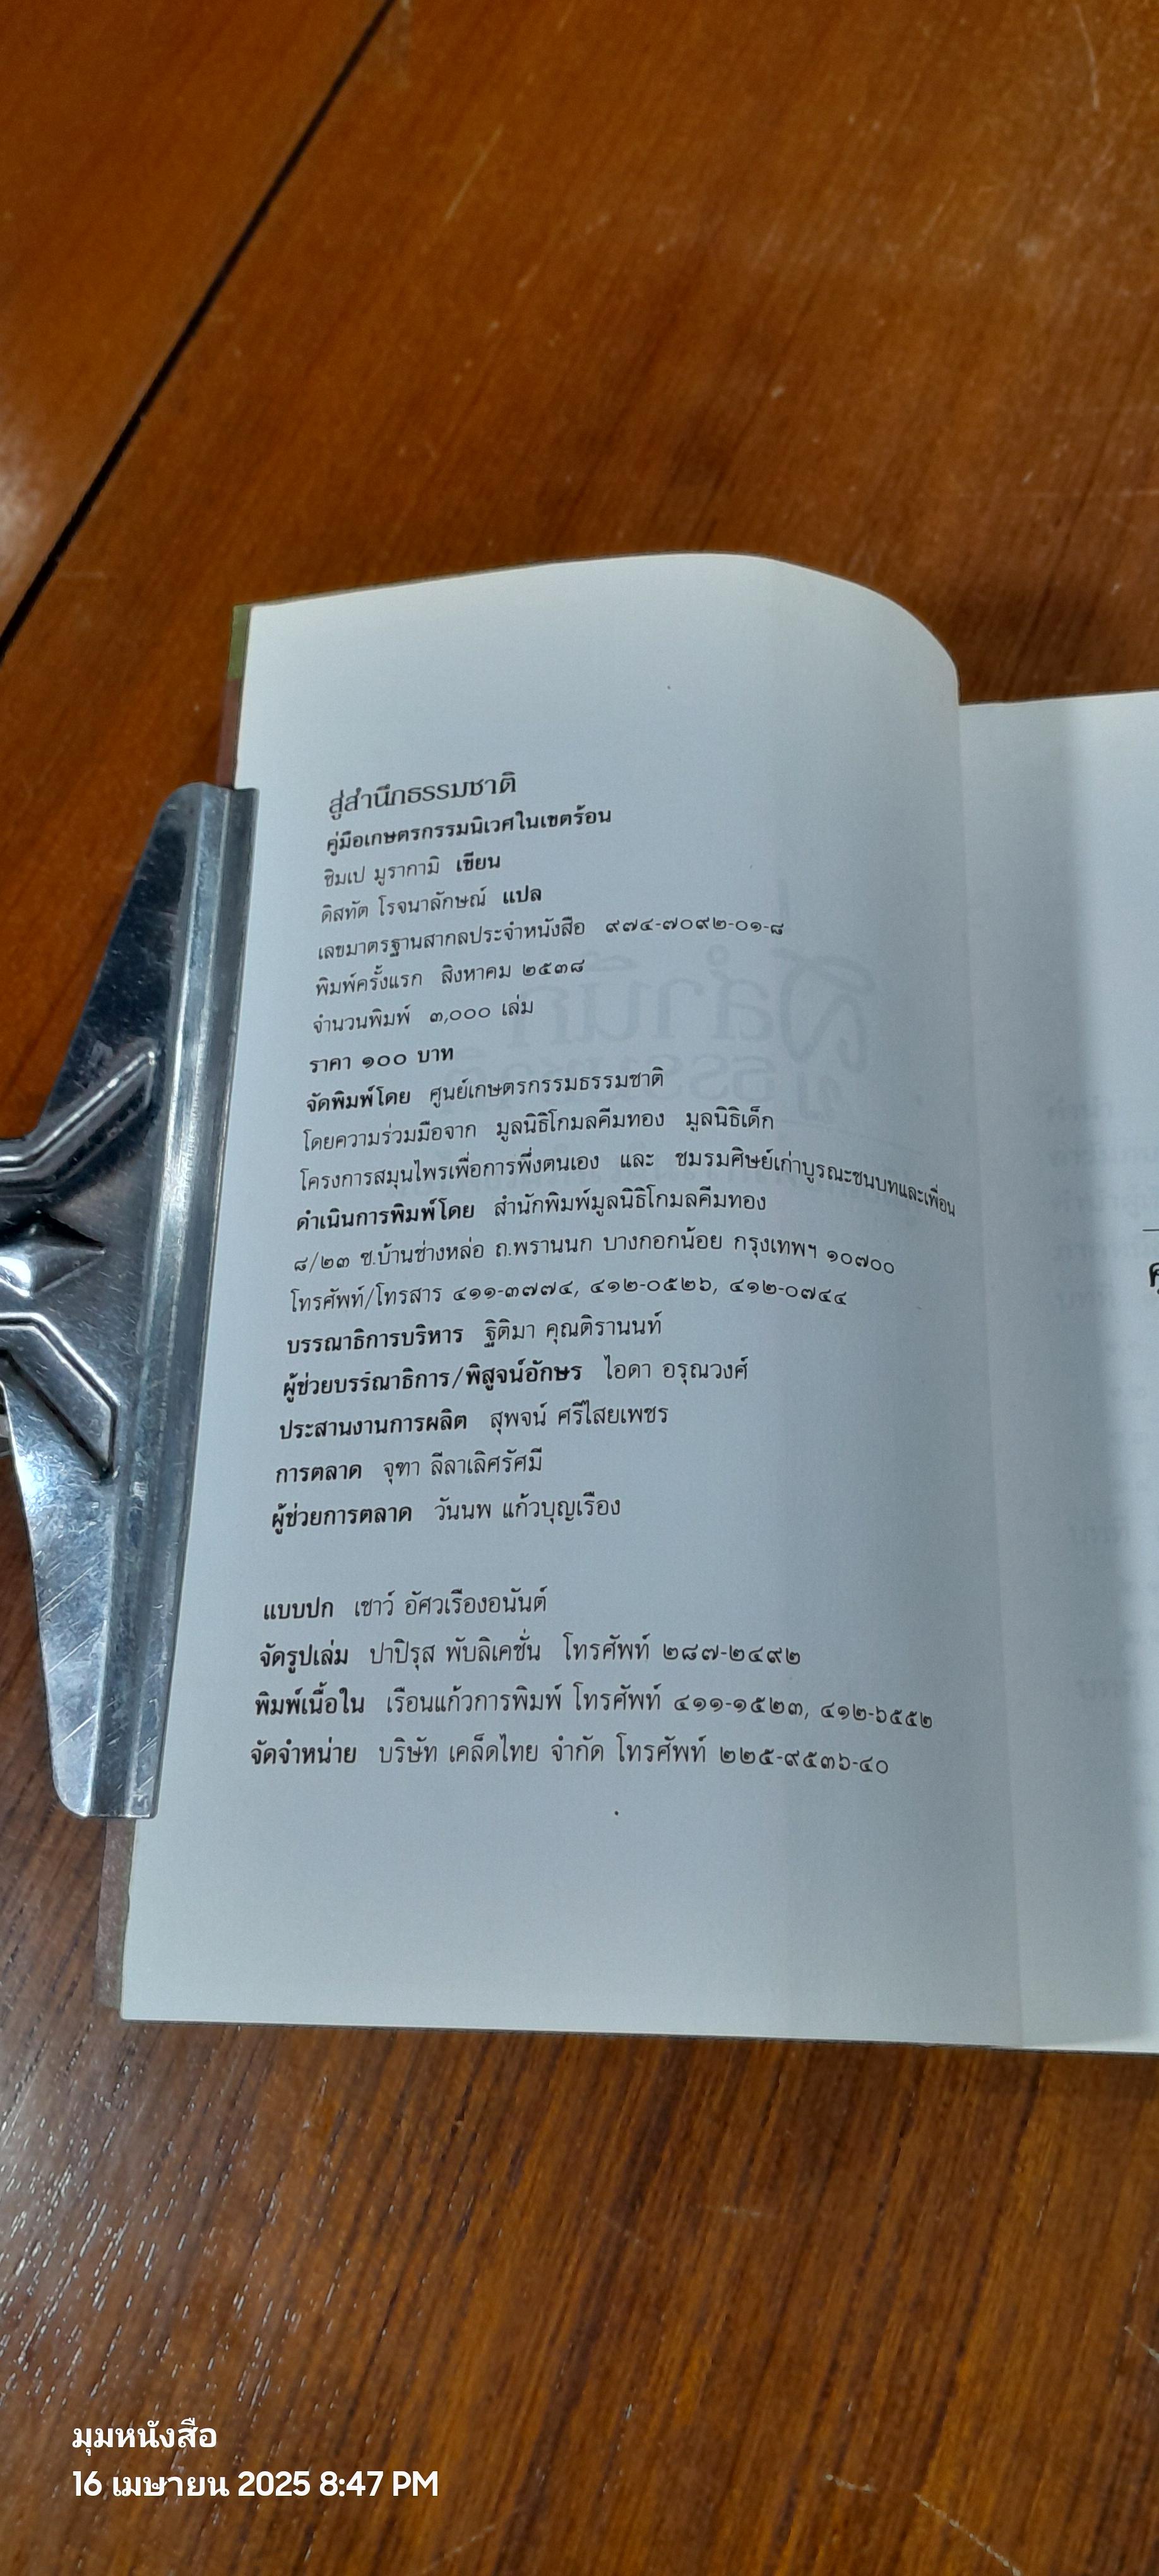 สู่สำนึกธรรมชาติ
คู่มือเกษตรกรรมนิเวศในเขตร้อน
ชิมเป มูรากามิ เขียน
ดิสทัต โรจนาลักษณ์ แปล
เลขมาตรฐานสากลประจำหนังสือ ๙๗๔-๗๐๙๒-๐๑-๘
พิมพ์ครั้งแรก สิงหาคม ๒๕๓๘
จำนวนพิมพ์ ๓,๐๐๐ เล่ม
ราคา ๑๐๐ บาท
จัดพิมพ์โดย ศูนย์เกษตรกรรมธรรมชาติ
โดยความร่วมมือจาก มูลนิธิโกมลคีมทอง มูลนิธิเด็ก
โครงการสมุนไพรเพื่อการพึ่งตนเอง และ ชมรมศิษย์เก่าบูรณะชนบทและเพื่อน
ดำเนินการพิมพ์โดย สำนักพิมพ์มูลนิธิโกมลคีมทอง
๘/๒๓ ซ.บ้านช่างหล่อ ถ.พรานนก บางกอกน้อย กรุงเทพฯ ๑๐๗๐๐
โทรศัพท์/โทรสาร ๔๑๑-๓๗๗๔, ๔๑๒-๐๕๒๖, ๔๑๒-๐๗๔๔
บรรณาธิการบริหาร ฐิติมา คุณติรานนท์
ผู้ช่วยบรรณาธิการ/พิสูจน์อักษร ไอดา อรุณวงศ์
ประสานงานการผลิต สุพจน์ ศรีไสยเพชร
การตลาด จุฑา ลีลาเลิศรัศมี
ผู้ช่วยการตลาด วันนพ แก้วบุญเรือง
แบบปก เชาว์ อัศวเรืองอนันต์
จัดรูปเล่ม ปาปิรุส พับลิเคชั่น โทรศัพท์ ๒๘๗-๒๔๙๒
พิมพ์เนื้อใน เรือนแก้วการพิมพ์ โทรศัพท์ ๔๑๑-๑๕๒๓, ๔๑๒-๖๕๕๒
จัดจำหน่าย บริษัท เคล็ดไทย จำกัด โทรศัพท์ ๒๒๕-๙๕๓๖-๔๐
มุมหนังสือ
16 เมษายน 2025 8:47 PM